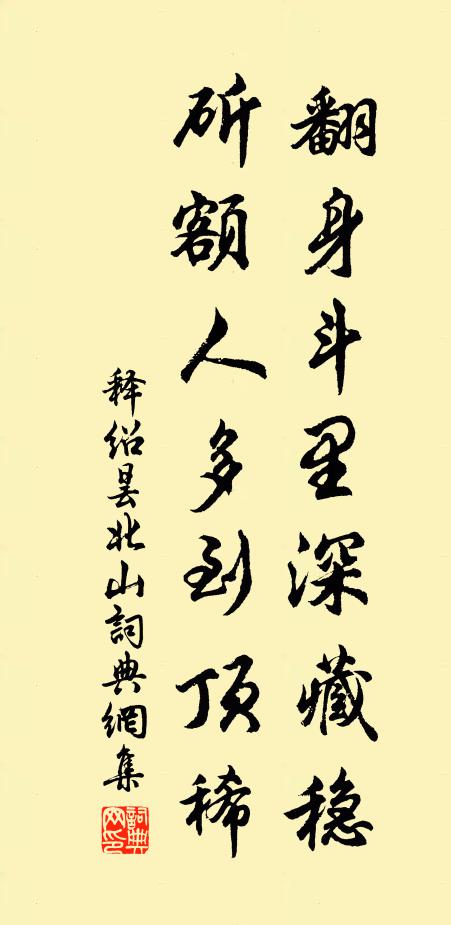 翻身斗里深藏稳
斫额人多到顶稀
释绍昙北山词典網集
詞典網印